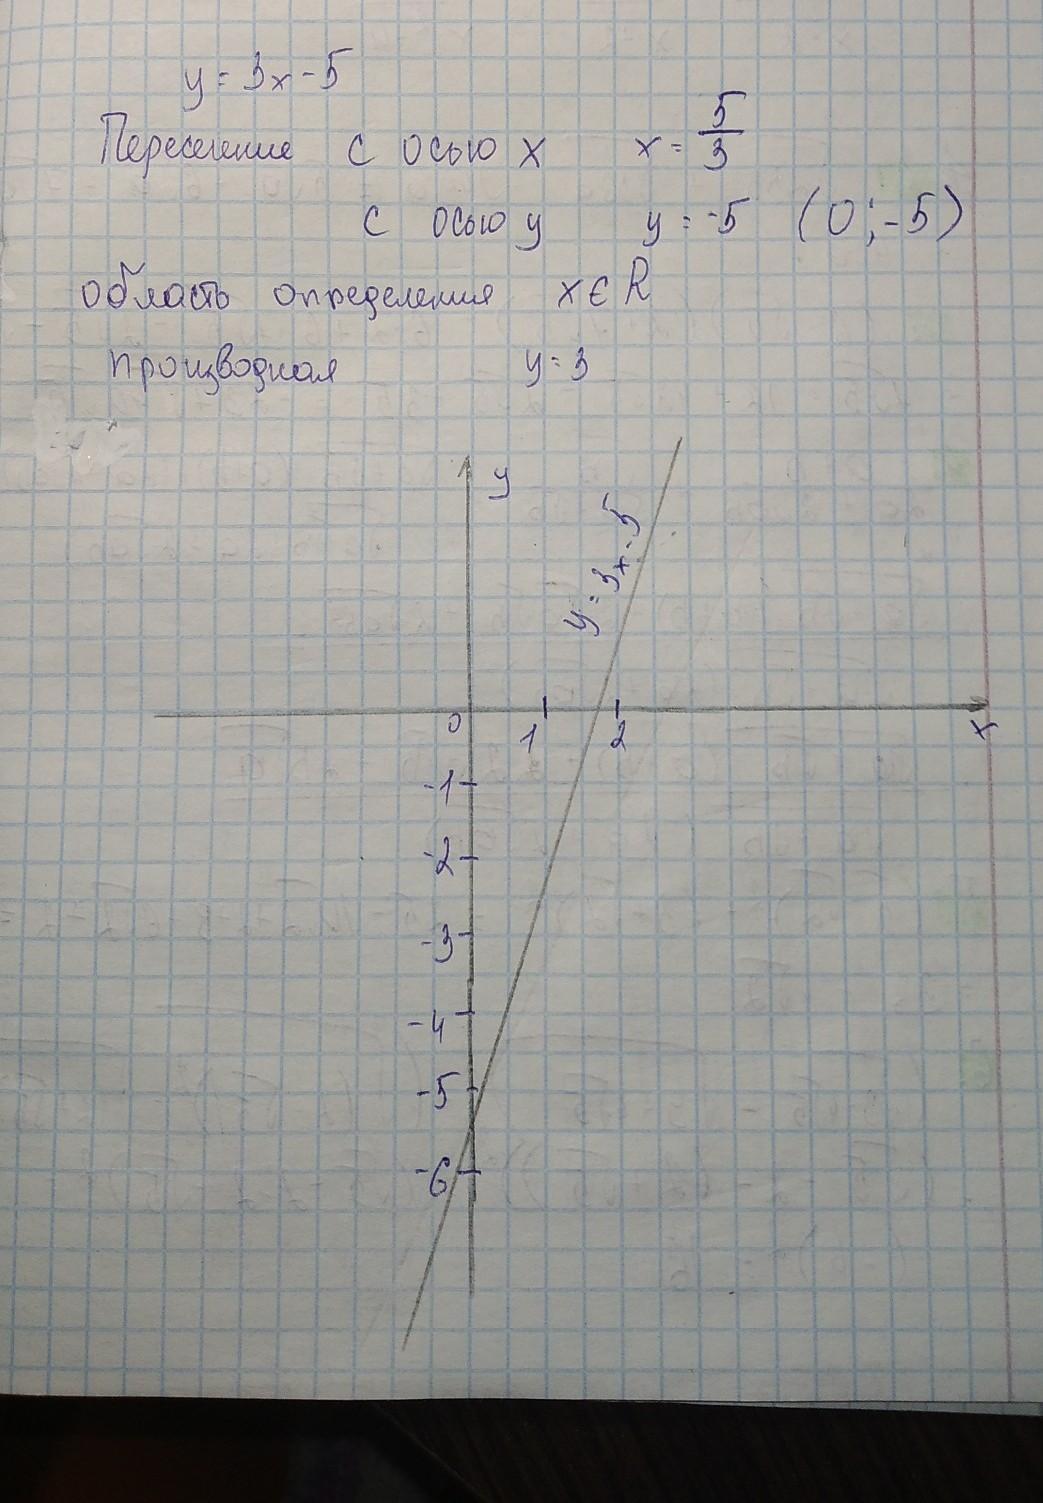 y = 3x - 5
Пересечение с осью x x = 5/3
с осью y y = -5 (0; -5)
область определения x ∈ R
производная y = 3
y
y = 3x - 5
0
1
2
x
-1
-2
-3
-4
-5
-6